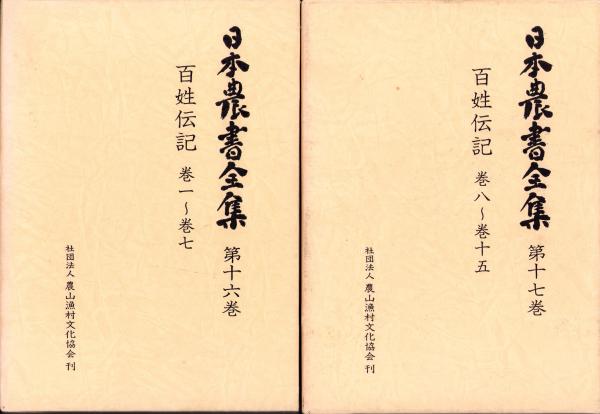 日本農書全集 第十六巻
百姓伝記 巻一~巻七
社団法人 農山漁村文化協会 刊
日本農書全集 第十七巻
百姓伝記 巻八~巻十五
社団法人 農山漁村文化協会 刊